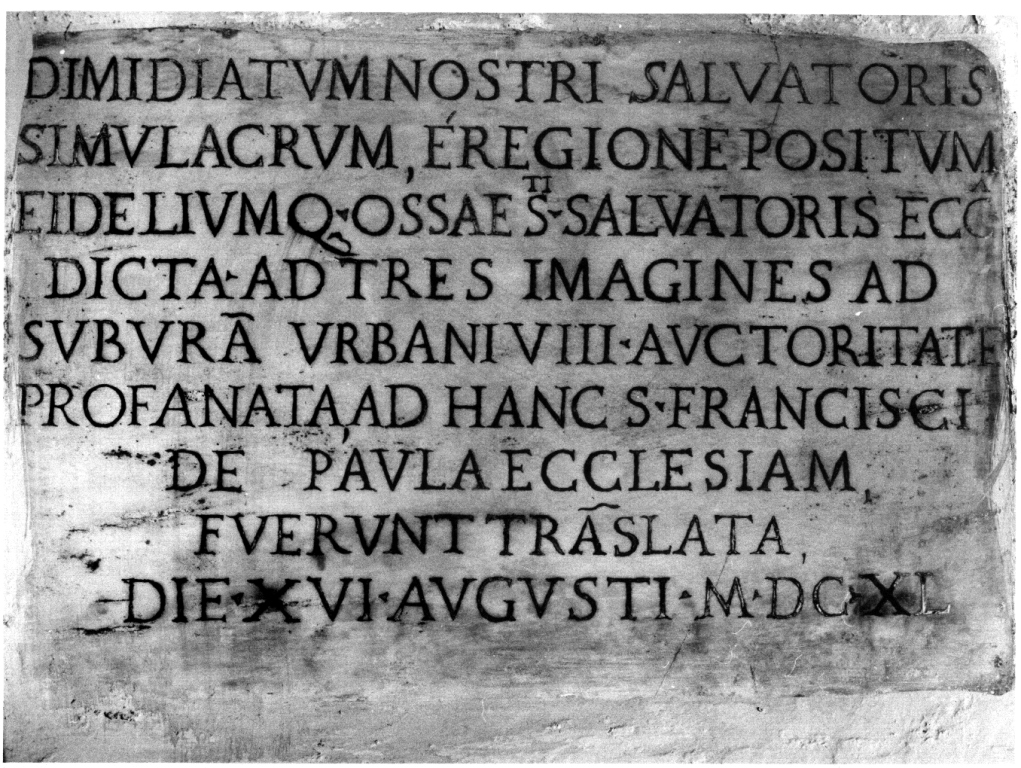 DIMIDIATVM NOSTRI SALVATORIS
SIMVLACRVM, É REGIONE POSITVM
FIDELIVMQ· OSSA E S.TI SALVATORIS ECC̃
DICTA· AD TRES IMAGINES AD
SVBVRÃ VRBANI VIII· AVCTORITATE
PROFANATA, AD HANC S· FRANCISCI
DE PAVLA ECCLESIAM,
FVERVNT TRÃSLATA,
DIE· XVI· AVGVSTI· M· DC· XL